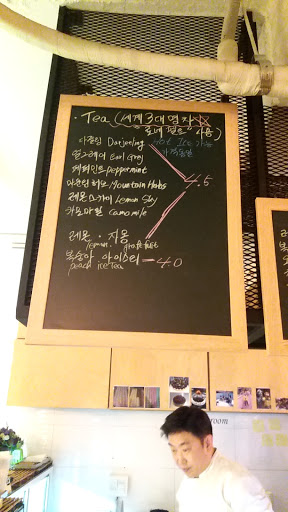 · Tea (세계 3대 명차
"로네펠트" 사용)
다즐링 Darjeeling
Hot Ice 가능
얼그레이 Earl Grey
페퍼민트 peppermint
마운틴 허브 Mountain Herbs
4.5
레몬 스카이 Lemon Sky
카모마일 Camomile
레몬 · 자몽
lemon · grapefruit
복숭아 아이스티 — 4.0
peach ice tea
room